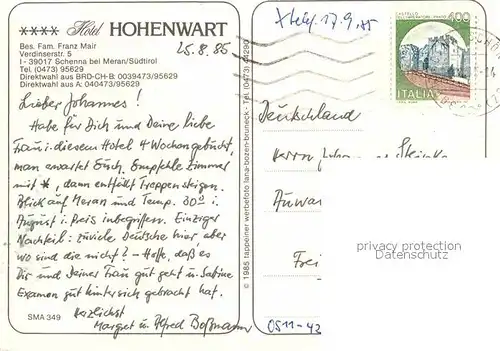 **** Hotel HOHENWART
Bes. Fam. Franz Mair
Verdinserstr. 5
I - 39017 Schenna bei Meran/Südtirol
Tel. (0473) 95629
Direktwahl aus BRD-CH-B 0039473/95629
Direktwahl aus A: 040473/95629
25.8.86
Lieber Johannes!
Habe für Dich und Deine liebe
Frau i. diesem Hotel 4 Wochen gebucht,
man erwartet Euch. Empfehle Zimmer
mit *, dann entfällt Treppensteigen.
Blick auf Meran und Temp. 30° i.
August i. Preis inbegriffen. Einziger
Nachteil: zuviele Deutsche hier, aber
wo sind die nicht? - Hoffe, daß es
Dir und Deiner Frau gut geht u. Sabine
Examen gut hinter sich gebracht hat.
Herzlichst
Margret u. Alfred Boßmann
SMA 349
© 1985 tappeiner werbefoto lana-bozen-bruneck - Tel. (0473)
X telef. 17.9.85
400
ITALIA
Deutschland
Herrn
privacy protection
Datenschutz
Frei
0511-42